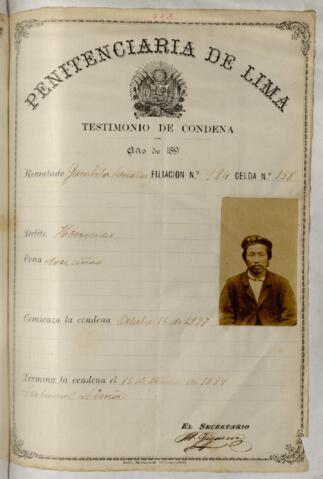 PENITENCIARIA DE LIMA
TESTIMONIO DE CONDENA
Año de 189
Rematado FILIACION N.º 184 CELDA N.º 158
Delito Homicidio
Pena doce años
Comienza la condena Octubre 15 de 1877
Termina la condena el 15 de de 1889
Tribunal Lima
EL SECRETARIO